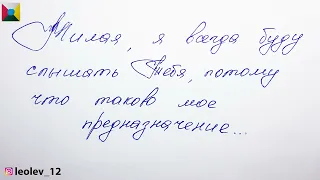 Милая, я всегда буду
слышать Тебя, потому
что таково мое
предназначение...
leolev_12